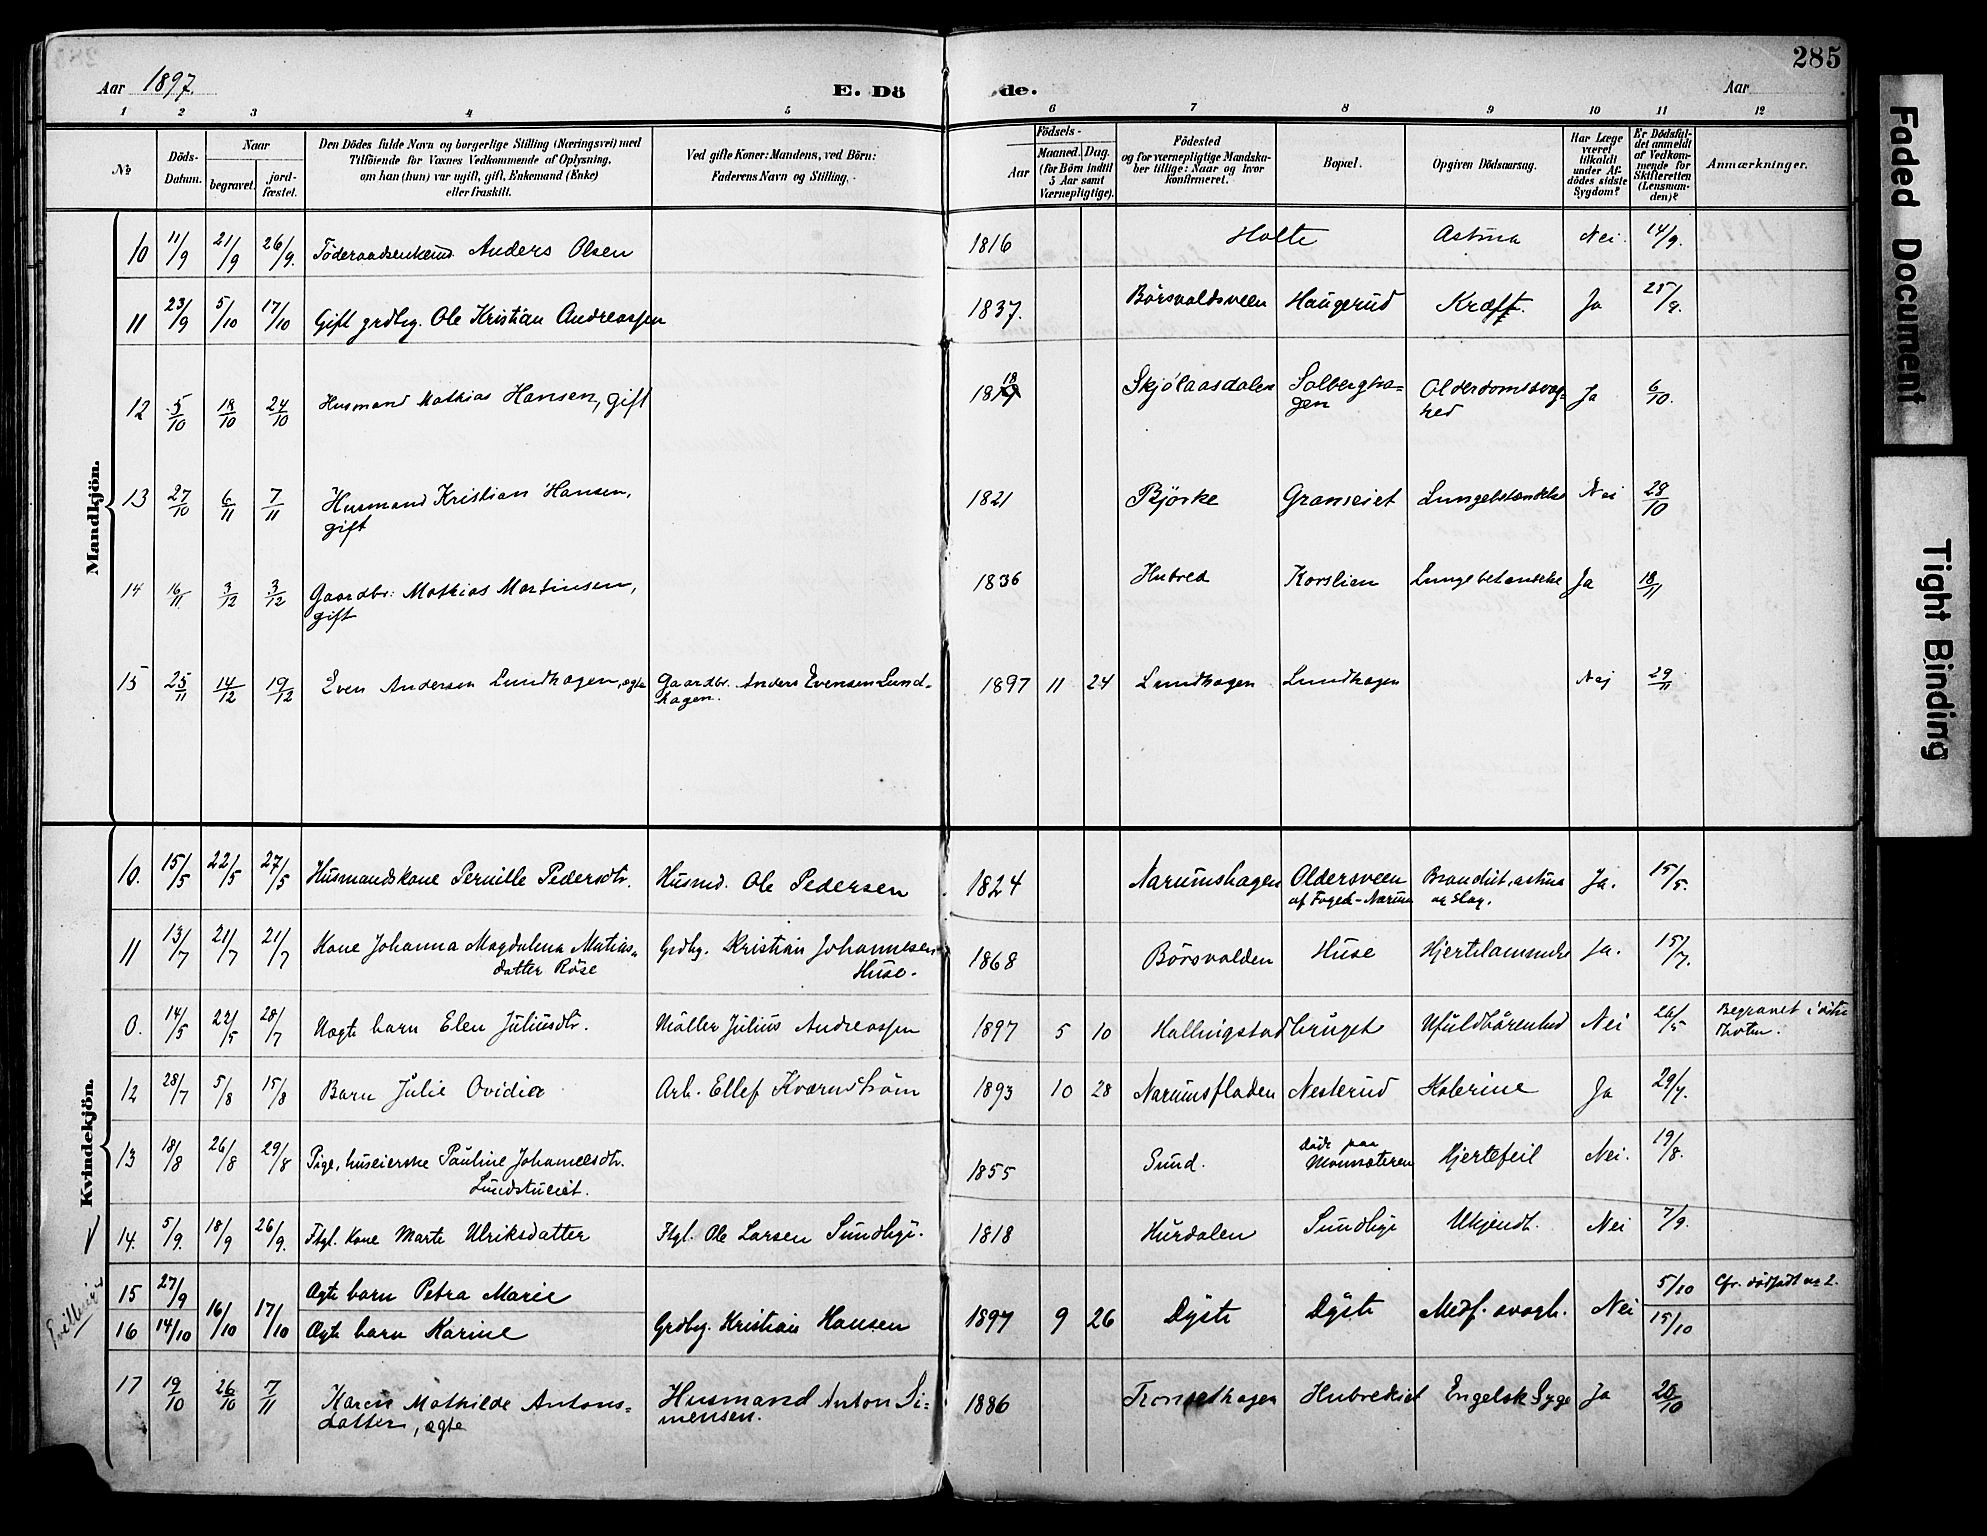 285
Aar 1897.
E. Dö de.
Aar
1 2 3 4 5 6 7 8 9 10 11 12
No
Döds-Datum.
Naar
begravet.
jord-fæstet.
Den Dödes fulde Navn og borgerlige Stilling (Næringsvei) med
Tilföiende for Voxnes Vedkommende af Oplysning,
om han (hun) var ugift, gift, Enkemand (Enke)
eller fraskilt.
Ved gifte Koner: Mandens, ved Börn:
Faderens Navn og Stilling.
Födsels-
Aar
Maaned. Dag.
(for Börn indtil
5 Aar samt
Værnepligtige).
Födested
og for værnepligtige Mandska-
ber tillige: Naar og hvor
konfirmeret.
Bopæl.
Opgiven Dödsaarsag.
Har Læge
været
tilkaldt
under Af-
dödes sidste
Sygdom?
Er Dödsfal-
det anmeldt
af Vedkom-
mende for
Skifteretten
(Lensman-
den)?
Anmærkninger.
Mandkjön.
10 11/9 21/9 26/9. Föderaadsenkemd. Anders Olsen 1816 Holte Astma Nei. 14/9.
11 23/9 5/10 17/10 Gift grdbrg. Ole Kristian Andreassen 1837. Börsvoldsveen Haugerud Kræft. Ja 25/9.
12 5/10 18/10 24/10 Husmand Mathias Hansen, gift 1818 Skjölaasdalen Solbergha-
gen Olderdomssvag-
hed Ja 6/10.
13 27/10 6/11 7/11 Husmand Kristian Hansen,
gift 1821 Björke Graneiet Lungebetændelse Nei 28/10
14 16/11 3/12 3/12 Gaardbr: Mathias Martinsen,
gift 1836 Hubred Korslien Lungebetændelse Ja 18/11
15 25/11 14/12 19/12 Even Andersen Lundhagen, ægte Gaardbr. Anders Evensen Lund-
hagen. 1897 11 24 Lundhagen Lundhagen Nej 29/11
Kvindekjön.
10. 15/5 22/5 27/5 Husmandskone Pernille Pedersdtr. Husmd. Ole Pedersen 1824 Narumshagen Oldersveen
af Foged-Narum Bronchit, astma
og slag. Ja. 15/5.
11 13/7 21/7 21/7 Kone Johanna Magdalena Matias-
datter Röse Grdbrg. Kristian Johannesen
Huse. 1868 Börsvolden Huse Hjertelammelse Ja. 15/7.
0. 14/5 22/5 28/7 Uægte barn Elen Juliusdtr. Möller Julius Andreassen 1897 5 10 Hallingstadbruget Ufuldbårenhed Nei 26/5 Begravet i östre
Thoten.
12 28/7 5/8 15/8 Barn Julie Ovidia Arb. Ellef Kværnström 1893 10 28 Narumsfladen Nesterud Kolerine Ja 29/7.
13 18/8 26/8 29/8 Pige, huseierske Pauline Johannesdtr.
Lundstueiet. 1855 Sund. döde paa
Hjertefeil Nei. 19/8.
14. 5/9. 18/9 26/9. Ftgl. Kone Marte Ulriksdatter Ftgl. Ole Larsen Sundlige. 1818 Hurdalen Sundlige Ukjendt. Nei 7/9.
15 27/9 16/10 17/10 Ægte barn Petra Marie Grdbrg. Kristian Hansen 1897 9 26 Dyste Dyste Medf. svagh. Nei 5/10 Cfr. dödfödt no 2.
16 14/10 Ægte barn Karine 15/10
17 19/10 26/10 7/11 Karen Mathilde Antons-
datter, ægte Husmand Anton Si-
mensen. 1886 Tronsethagen Hubredeiet Engelsk Syge Ja 20/10
Faded Document
Tight Binding